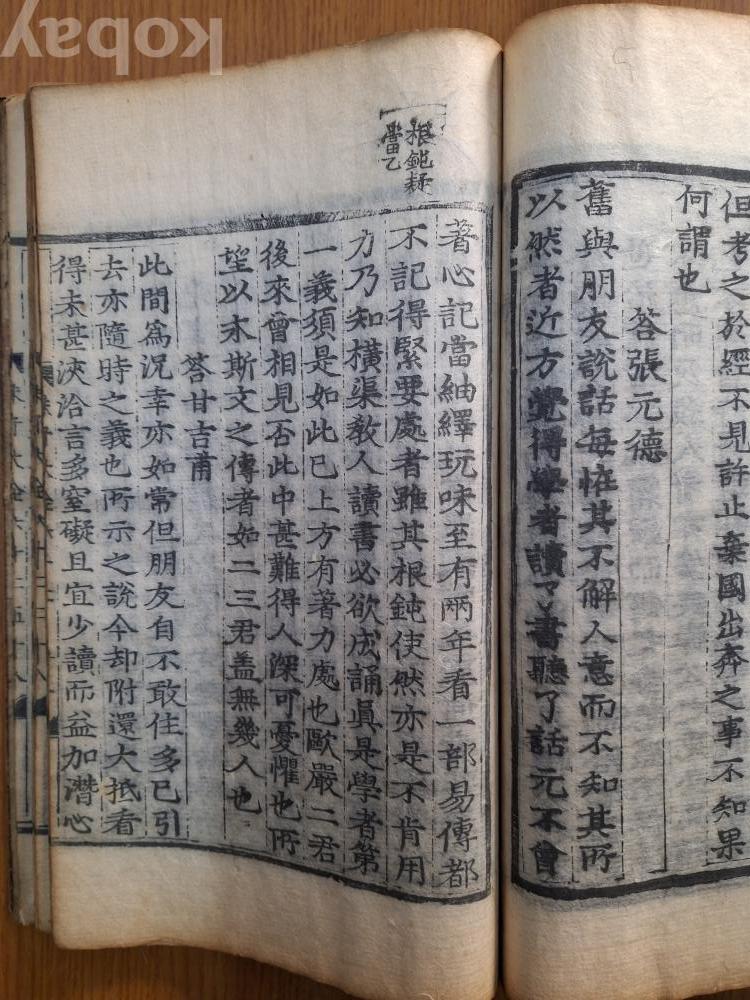 kobay
但考之於經不見許止棄國出奔之事不知果
何謂也
答張元德
舊與朋友說話每怪其不解人意而不知其所
以然者近方覺得學者讀了書聽了話元不曾
根鈍疑
當乙
著心記當紬繹玩味至有兩年看一部易傳都
不記得緊要處者雖其根鈍使然亦是不肯用
力乃知橫渠教人讀書必欲成誦眞是學者第
一義須是如此已上方有著力處也歐嚴二君
後來曾相見否此中甚難得人深可憂懼也所
望以永斯文之傳者如二三君盖無幾人也
答甘吉甫
此間爲況幸亦如常但朋友自不敢住多已引
去亦隨時之義也所示之說今却附還大抵看
得未甚浹洽言多窒礙且宜少讀而益加潛心